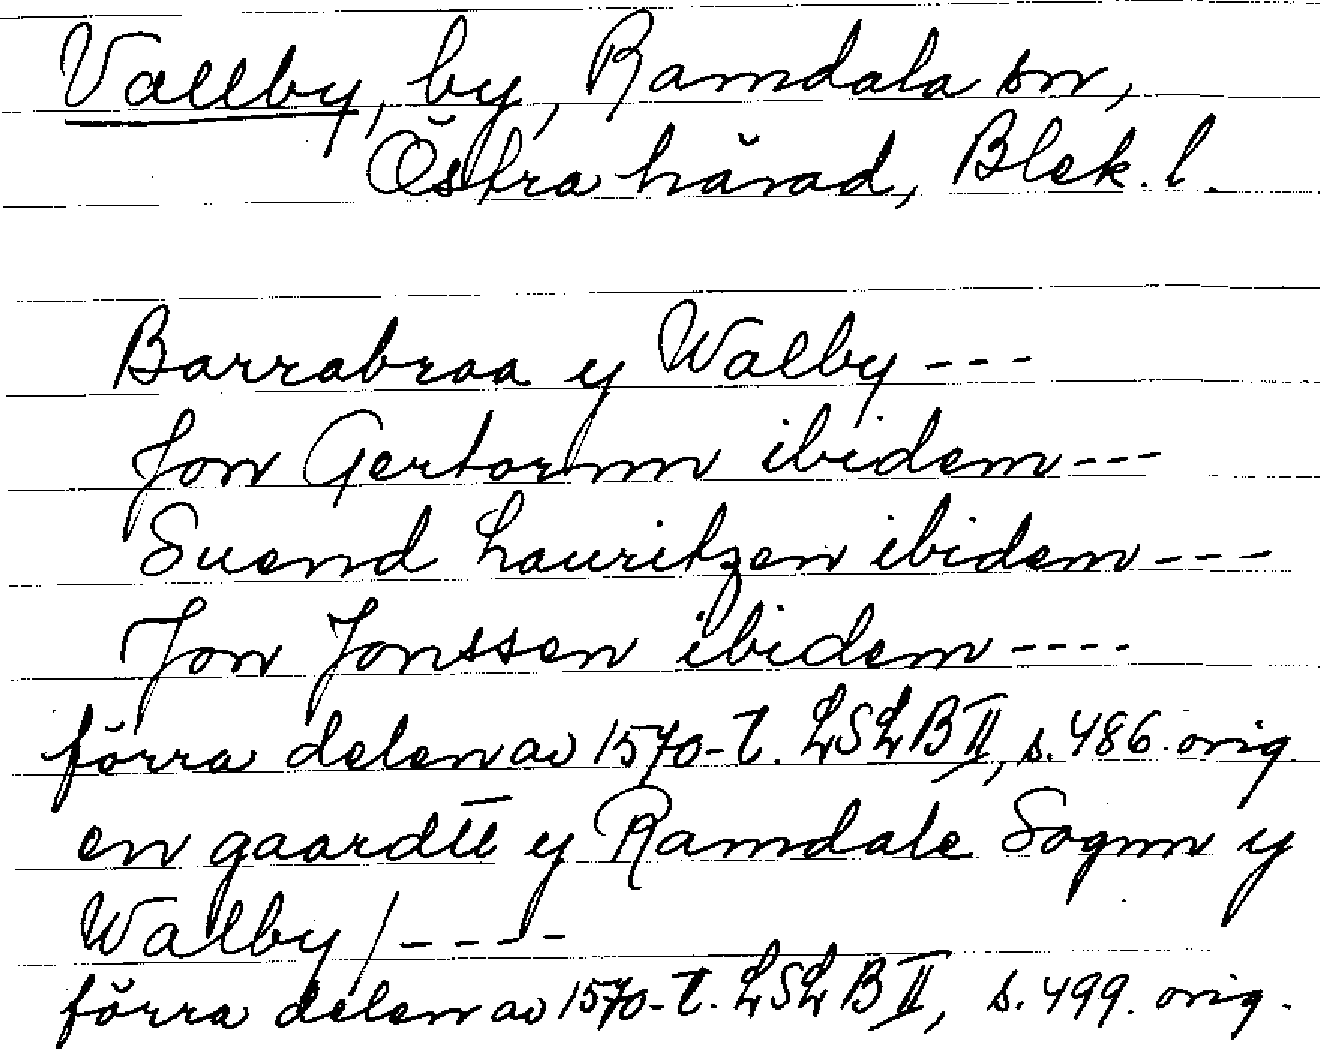 Vallby, by, Ramdala sn,
Östra härad, Blek. l.
Barrabraa y Walby ---
Jon Gertormn ibidem ---
Suend Lauritzen ibidem ---
Jon Jonssen ibidem ----
förra delen av 1570-t. LSLB II, s. 486. orig.
en gaardtt y Ramdale Sognn y
Walby /----
förra delen av 1570-t. LSLB II, s. 499. orig.